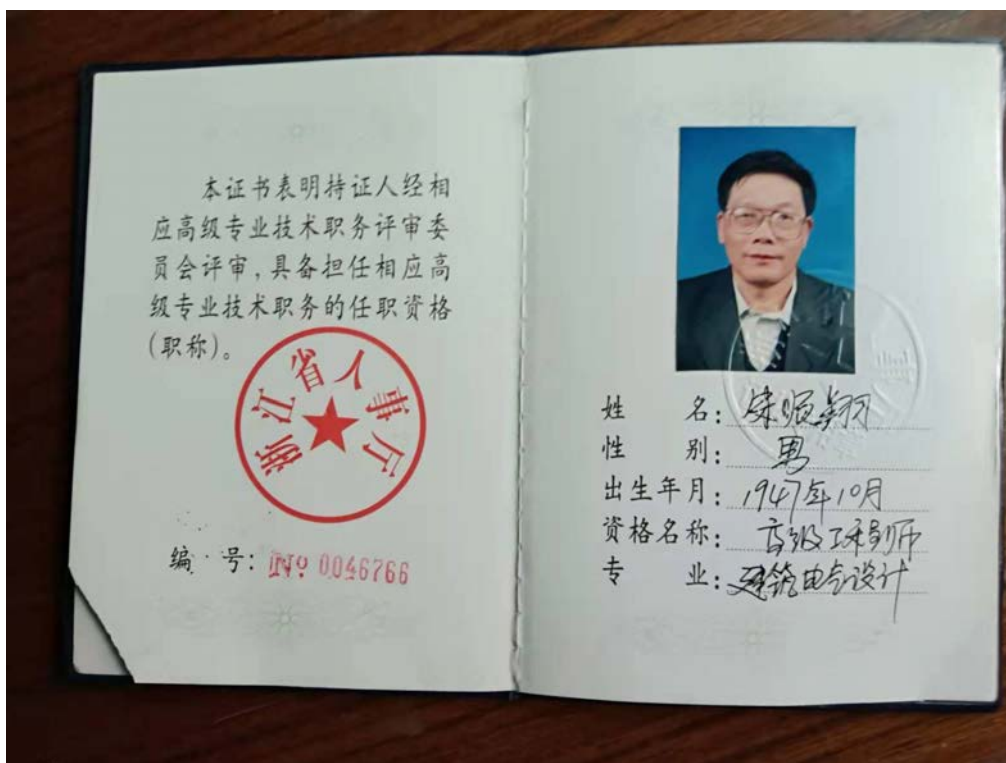 本证书表明持证人经相
应高级专业技术职务评审委
员会评审,具备担任相应高
级专业技术职务的任职资格
(职称)。
浙江省人事厅
编 号: No 0046766
姓 名: 顺翔
性 别: 男
出生年月: 1947年10月
资格名称: 高级工程师
专 业: 建筑电气设计